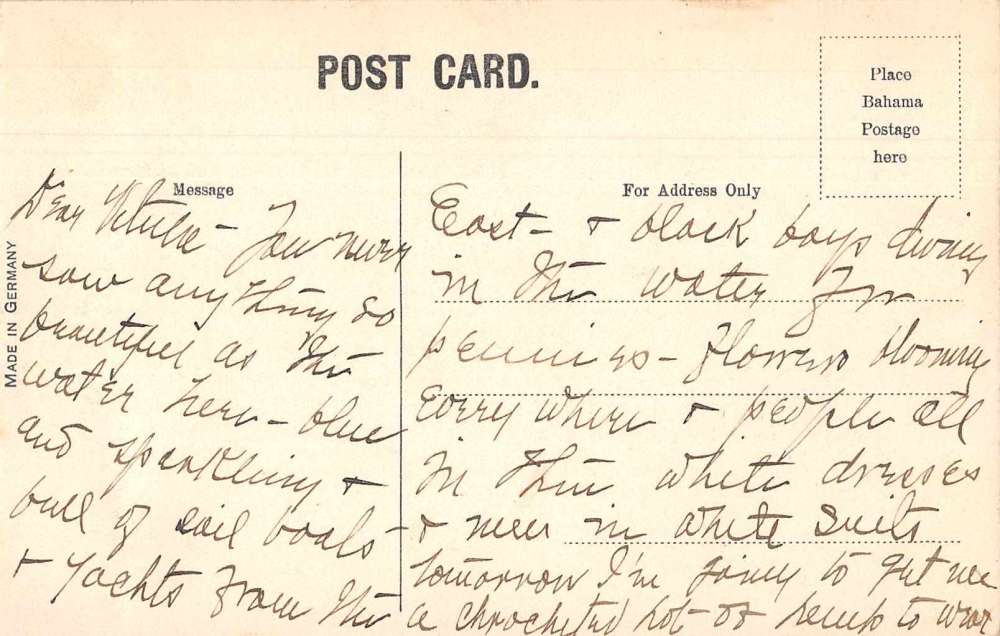 POST CARD.
Place
Bahama
Postage
here
MADE IN GERMANY
Message
Dear - You never
saw anything so
beautiful as the
water here - blue
and sparkling +
full of sail boats
+ yachts from the
For Address Only
East - + black boys diving
in the water for
pennies - flowers blooming
every where + people all
in thin white dresses
+ men in white suits
tomorrow I'm going to get me
a chrocheted hat of hemp to wear